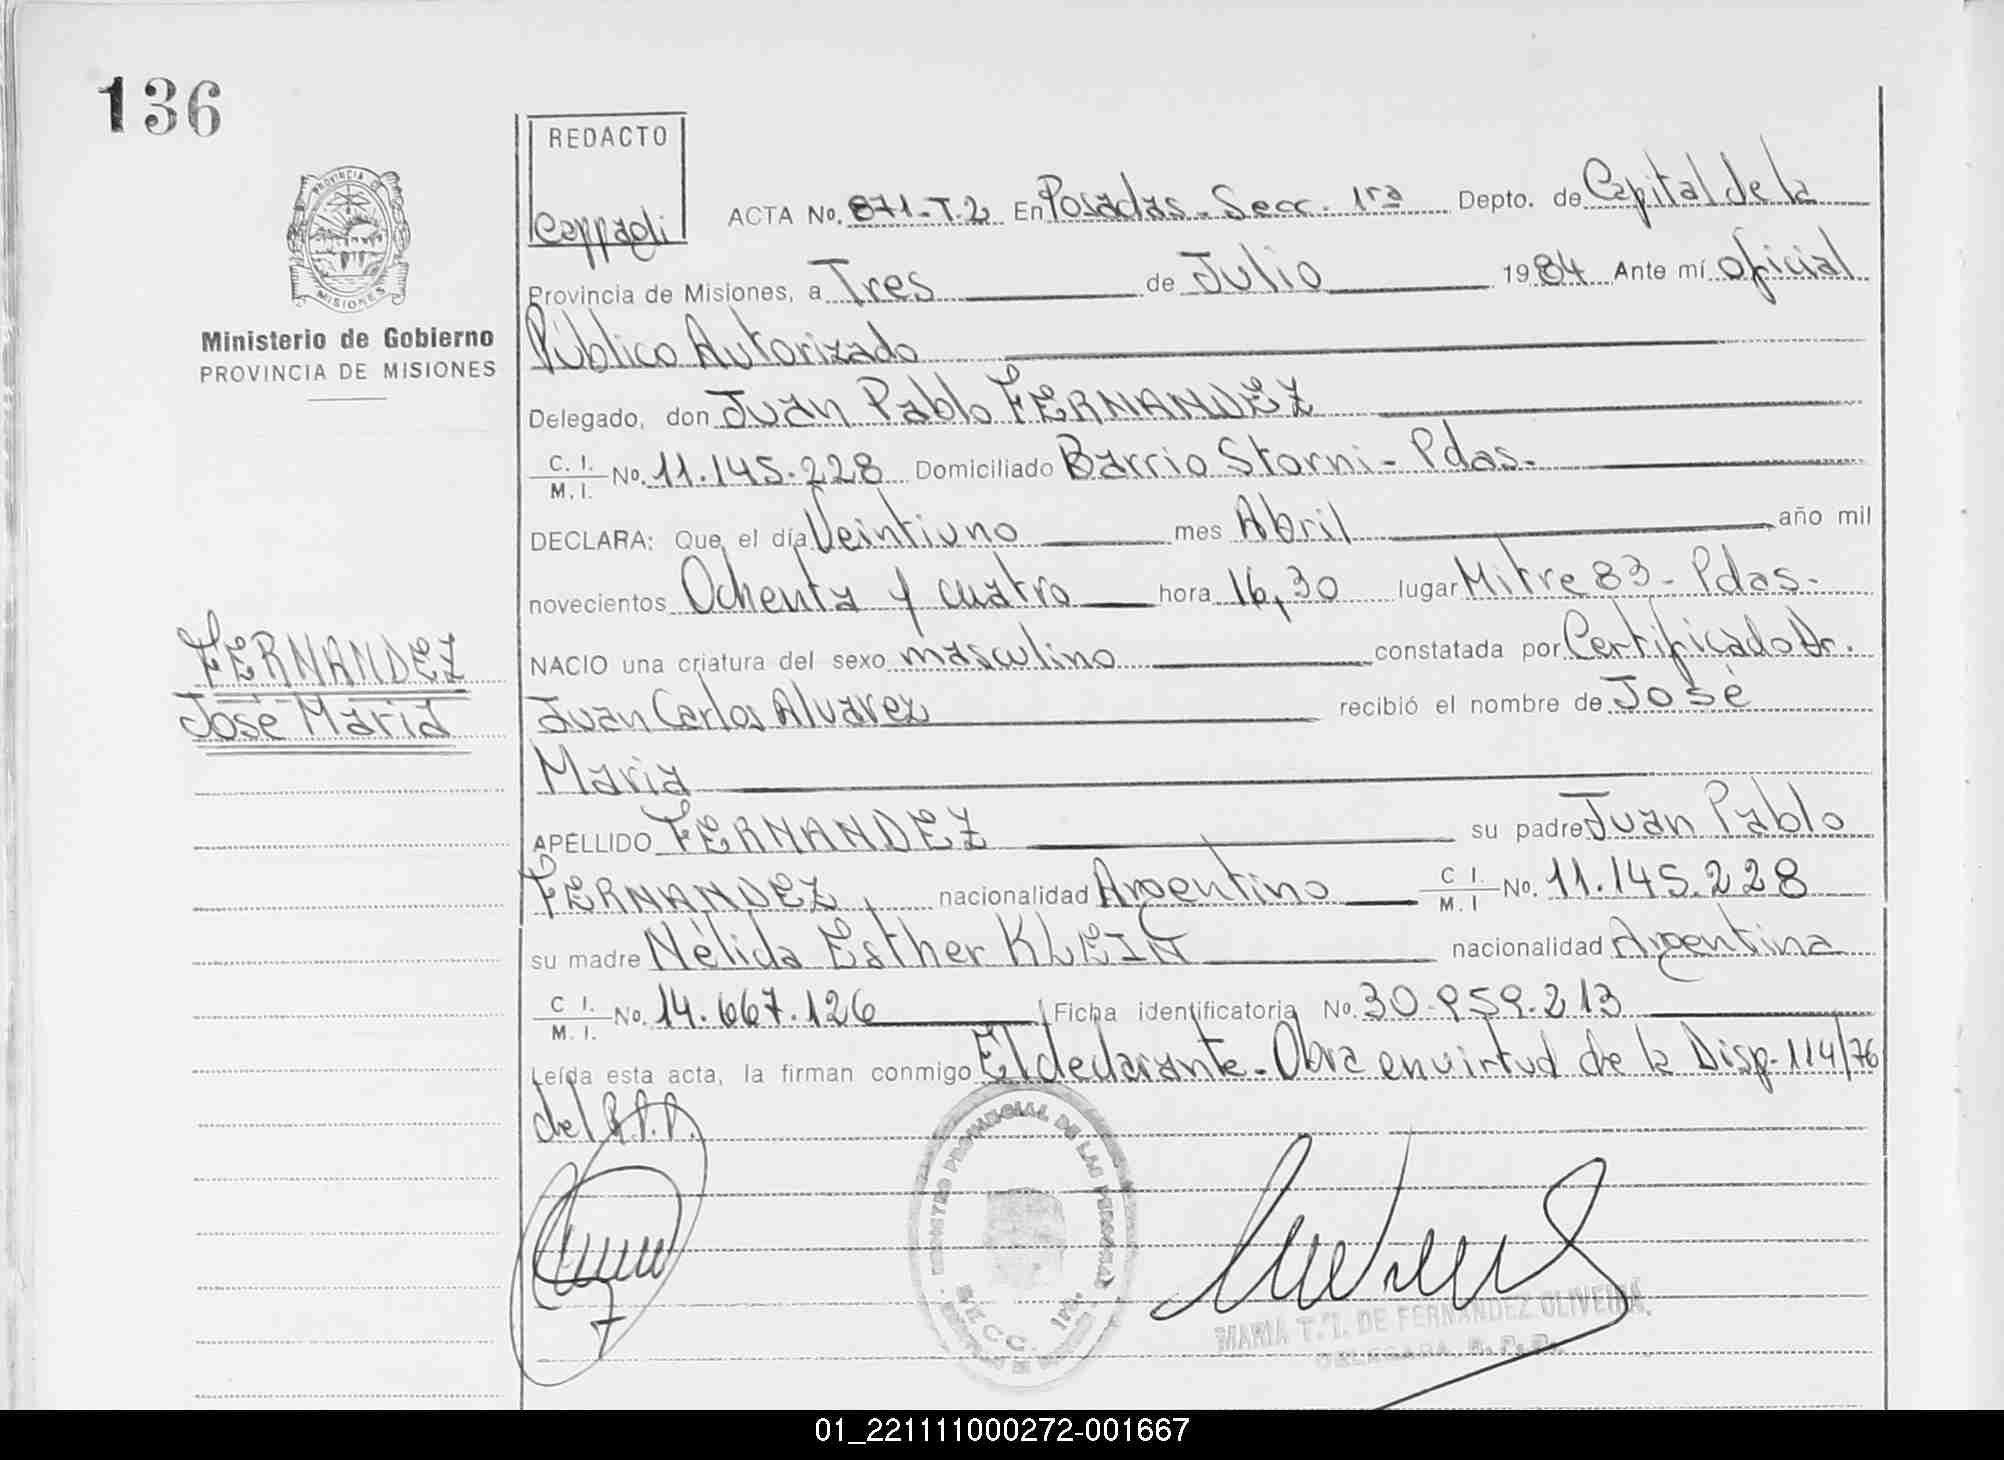 136
PROVINCIA DE
MISIONES
Ministerio de Gobierno
PROVINCIA DE MISIONES
FERNANDEZ
José María
REDACTO
ACTA No. 871-T.2 En Posadas - Secc. 1ra Depto. de Capital de la
Provincia de Misiones, a Tres de Julio 1984 Ante mí oficial
Público Autorizado
Delegado, don Juan Pablo FERNANDEZ
C. I.
M. I. No. 11.145.228 Domiciliado Barrio Storni - Pdas.
DECLARA: Que el día Veintiuno mes Abril año mil
novecientos Ochenta y cuatro hora 16,30 lugar Mitre 83 - Pdas.
NACIO una criatura del sexo masculino constatada por Certificado Dr.
Juan Carlos Alvarez recibió el nombre de José
Maria
APELLIDO FERNANDEZ su padre Juan Pablo
FERNANDEZ nacionalidad Argentino C I. M. I No. 11.145.228
su madre Nélida Esther KLEIN nacionalidad Argentina
C I.
M. I. No. 14.667.126 Ficha identificatoria No. 30.959.213
Leída esta acta, la firman conmigo El declarante - Obra en virtud de la Disp. 114/76
del R.P.P.
REGISTRO PROVINCIAL DE LAS PERSONAS
SECC. 1RA.
MARIA T. I. DE FERNANDEZ OLIVEIRA
DELEGADA R. P. P.
01_221111000272-001667